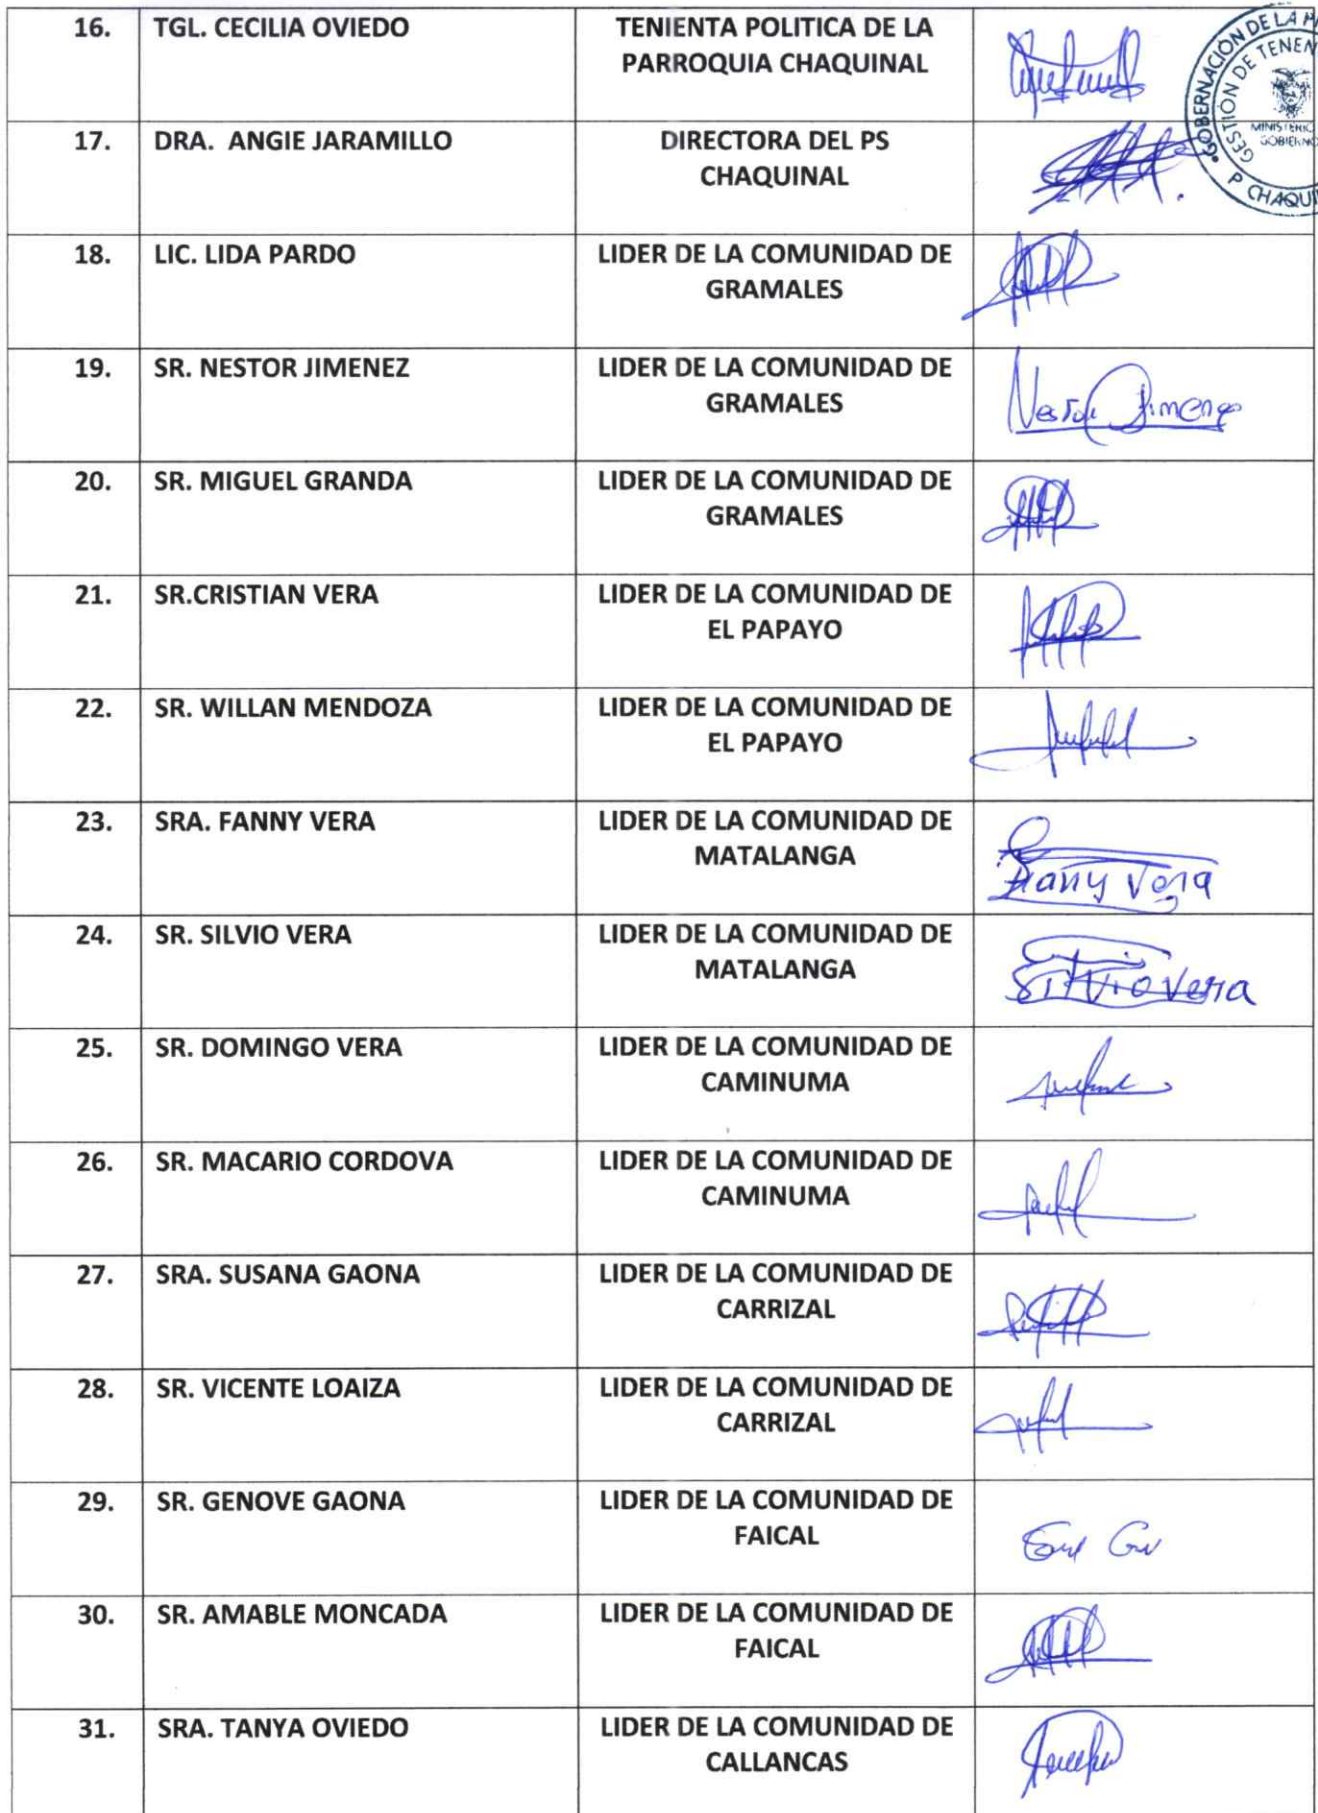 16. TGL. CECILIA OVIEDO TENIENTA POLITICA DE LA
PARROQUIA CHAQUINAL
GOBERNACIÓN DE LA
GESTION DE
MINISTERIO
GOBIERNO
17. DRA. ANGIE JARAMILLO DIRECTORA DEL PS
CHAQUINAL
18. LIC. LIDA PARDO LIDER DE LA COMUNIDAD DE
GRAMALES
19. SR. NESTOR JIMENEZ LIDER DE LA COMUNIDAD DE
GRAMALES
Nestor Jimenez
20. SR. MIGUEL GRANDA LIDER DE LA COMUNIDAD DE
GRAMALES
21. SR.CRISTIAN VERA LIDER DE LA COMUNIDAD DE
EL PAPAYO
22. SR. WILLAN MENDOZA LIDER DE LA COMUNIDAD DE
EL PAPAYO
23. SRA. FANNY VERA LIDER DE LA COMUNIDAD DE
MATALANGA
Fany Vera
24. SR. SILVIO VERA LIDER DE LA COMUNIDAD DE
MATALANGA
Silvio Vera
25. SR. DOMINGO VERA LIDER DE LA COMUNIDAD DE
CAMINUMA
26. SR. MACARIO CORDOVA LIDER DE LA COMUNIDAD DE
CAMINUMA
27. SRA. SUSANA GAONA LIDER DE LA COMUNIDAD DE
CARRIZAL
28. SR. VICENTE LOAIZA LIDER DE LA COMUNIDAD DE
CARRIZAL
29. SR. GENOVE GAONA LIDER DE LA COMUNIDAD DE
FAICAL
30. SR. AMABLE MONCADA LIDER DE LA COMUNIDAD DE
FAICAL
31. SRA. TANYA OVIEDO LIDER DE LA COMUNIDAD DE
CALLANCAS